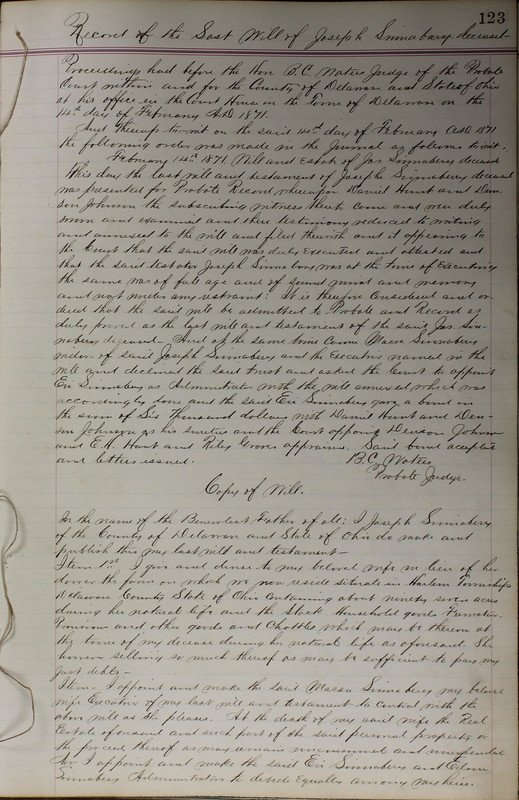 123
Record of the Last Will of Joseph Sinnabery deceased
Proceedings had before the Hon B.C. Waters Judge of the Probate
Court within and for the County of Delaware and State of Ohio
at his office in the Court House in the Town of Delaware on the
14th day of February A.D 1871.
And thereup to-wit on the said 14th day of February A.D 1871
the following order was made in the Journal as follows to wit.
February 14th 1871 Will and Estate of Jos Sinnabery deceased
This day the last will and testament of Joseph Sinnabery deceased
was presented for Probate & Record whereupon Daniel Hunt and Den-
son Johnson the subscribing witness thereto came and were duly
sworn and examined and there testimony reduced to writing
and annexed to the will and filed therwith and it appearing to
the Court that the said will was duly Executed and attested and
that the said testator Joseph Sinnabery was at the time of Executing
the same was of full age and of sound mind and memory
and not under any restraint: It is therefore Considered and or-
dered that the said will be admitted to Probate and Record as
duly proved as the last will and testament of the said Jos. Sin-
nabery deceased. And at the same time came Massa Sinnabery
widow of said Joseph Sinnabery and the Executor named in the
will and declined the said trust and asked the Court to appoint
Eri Sinnabery as Administrator with the will annexed which was
accordingly done and the said Eri Sinnabery gave a bond in
the sum of Six Thousand dollars with Daniel Hunt and Den-
son Johnson as his sureties and the Court appoint Denson Johnson
and E.A. Hunt and Riley Graves appraisers. Said bond accepted
and letters issued.
B.C. Waters
Probate Judge.
Copy of Will.
In the name of the Benevolent Father of all: I Joseph Sinnabery
of the County of Delaware and State of Ohio do make and
publish this my last will and testament—
Item 1st I give and devise to my beloved wife in lieu of her
dower the farm on which we now reside situate in Harlem Township
Delaware County State of Ohio containing about ninety seven acres
during her natural life and the Stock Household goods Furniture
Provision and other goods and Chattles which may be theron at
the time of my decease during her natural life as aforesaid She
however selling so much thereof as may be sufficient to pay my
just debts—
Item. I appoint and make the said Massa Sinnabery my beloved
wife Executor of my last will and testament to Control with the
above will as she pleases. At the death of my said wife the Real
Estate aforesaid and such part of the said personal property or
the proceed thereof as may remain unconsumed and unexpended
I appoint and make the said Eri Sinnabery and
Sinnabery Administrator to devide Equally among my heirs.